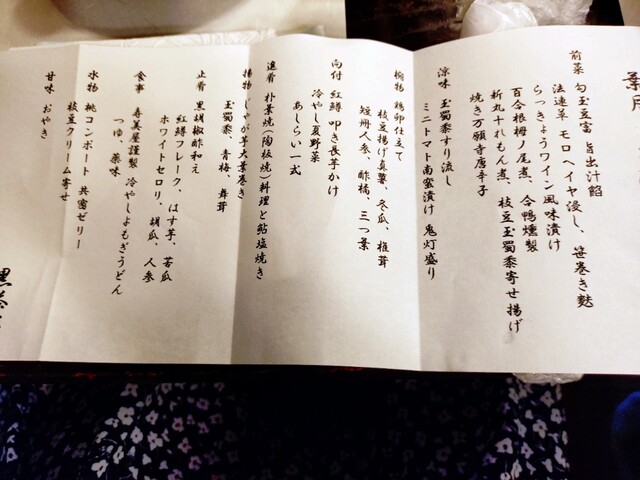 葉月
前菜 勾玉豆富 旨出汁餡
法連草 モロヘイヤ浸し、笹巻き麩
らっきょうワイン風味漬け
百合根栂ノ尾煮、合鴨燻製
新丸十れもん煮、枝豆玉蜀黍寄せ揚げ
焼き万願寺唐辛子
涼味 玉蜀黍すり流し
ミニトマト南蛮漬け 鬼灯盛り
椀物 鶏卵仕立て
枝豆揚げ真薯、冬瓜、椎茸
短冊人参、酢橘、三つ葉
向付 紅鱒 叩き長芋かけ
冷やし夏野菜
あしらい一式
進肴 朴葉焼(陶板焼)料理と鮎塩焼き
揚物 じゃが芋大葉巻き
玉蜀黍、青梅、舞茸
止肴 黒胡椒酢和え
紅鱒フレーク、はす芋、苦瓜
ホワイトセロリ、胡瓜、人参
食事 寿美屋謹製 冷やしよもぎうどん
つゆ、薬味
水物 桃コンポート 共蜜ゼリー
枝豆クリーム寄せ
甘味 おやき